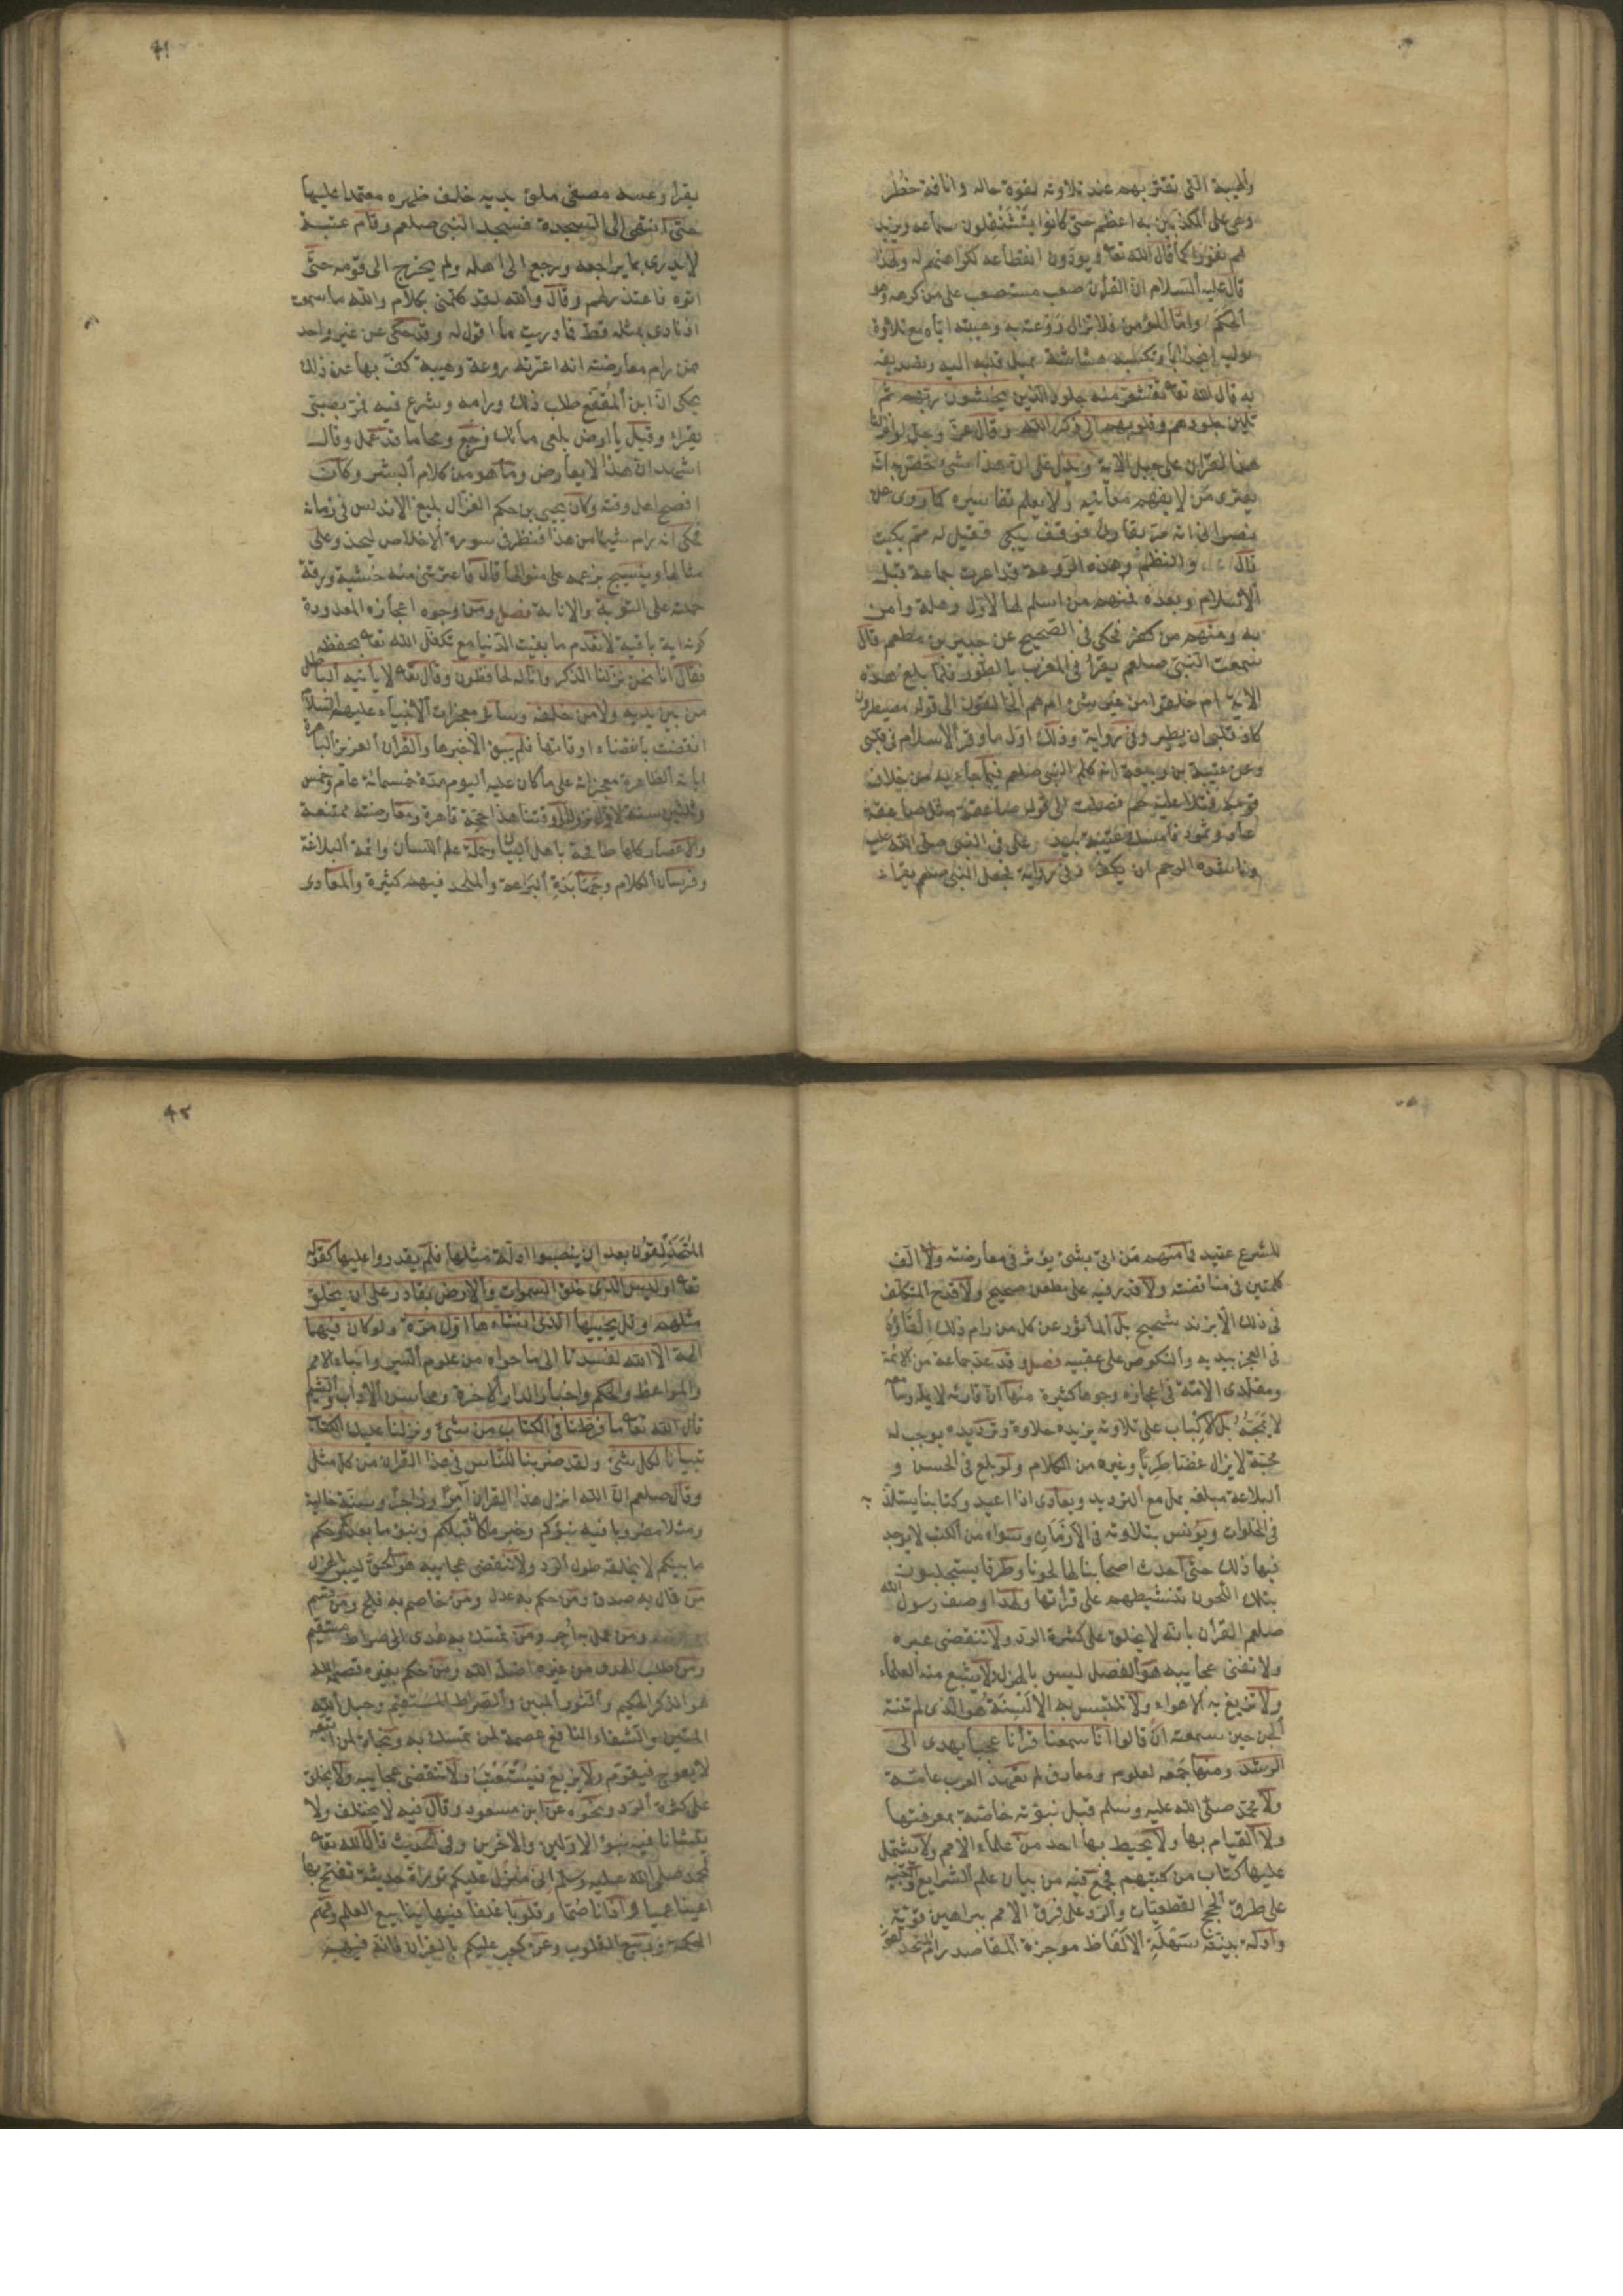 والهيبة التى تعتريهم عند تلاوته لقوة حاله وانافة خطر
وهى على المكذبين به اعظم حتى كانوا يستثقلون سماعه ويزيد
هم نفورا كما قال الله تعا ويودون انقطاعه لكراهتهم له ولهذا
قال عليه السلام ان القرأن صعب مستصعب على من كرهه وهو
الحكم واما المؤمن فلا تزال روعته به وهيبته اياه مع تلاوة
توليه انجذابا وتكسبه هشاشة لميل قلبه اليه وتصديقه
به قال الله تعا تقشعر منه جلود الذين يخشون ربهم ثم
تلين جلودهم وقلوبهم الى ذكر الله وقال عز وجل لو انزلنا
هذا القرأن على جبل الاية ويدل على ان هذا شئ خص به انه
يعترى من لا يفهم معانيه ولا يعلم تفاسيره كما روى عن
نصرانى انه مر بقارئ فوقف يبكى فقيل له مم بكيت
قال والنظم وهذه الروعة قد اعرت جماعة قبل
الاسلام وبعده فمنهم من اسلم لها لاول وهلة وامن
به ومنهم من كفر فحكى فى الصحيح عن جبير بن مطعم قال
سمعت النبى صلعم يقرأ فى المغرب بالطور فلما بلغ هذه
الاية ام خلقوا من غير شئ ام هم الخالقون الى قوله مصيطرون
كاد قلبى ان يطير وفى رواية وذلك اول ما وقر الاسلام فى قلبى
وعن عتبة بن ربيعة انه كلم النبى صلعم فيما جاء به من خلاف
قومه فتلا عليه حم فصلت الى قوله صاعقة مثل صاعقة
عاد وثمود فامسك عتبة بيده على فى النبى صلى الله عليه
وناشده الرحم ان يكف وفى رواية فجعل النبى صلعم يقرأ
يقرأ وعتبة مصغى ملق يديه خلف ظهره معتمدا عليها
حتى انتهى الى السجدة فسجد النبى صلعم وقام عتبة
لا يدرى بما يراجعه ورجع الى اهله ولم يخرج الى قومه حتى
اتوه فاعتذر لهم وقال والله لقد كلمنى بكلام والله ما سمعت
اذناى بمثله قط فما دريت ما اقول له وقد حكى عن غير واحد
ممن رام معارضته انه اعترته روعة وهيبة كف بها عن ذلك
يحكى ان ابن المقفع طلب ذلك ورامه وشرع فيه فمر بصبى
يقرأ وقيل يا ارض ابلعى مائك فرجع ومحا ما قد عمل وقال
اشهد ان هذا لا يعارض وما هو من كلام البشر وكان
افصح اهل وقته وكان يحيى بن حكم الغزال بليغ الاندلس فى زمانه
فحكى انه رام شيئا من هذا فنظر فى سورة الاخلاص ليحذو على
مثالها وينسج بزعمه على منوالها قال فاعترتنى منه خشية ورقة
حملته على التوبة والانابة فصل ومن وجوه اعجازه المعدودة
كونه اية باقية لا تعدم ما بقيت الدنيا مع تكفل الله تعا بحفظه
فقال انا نحن نزلنا الذكر وانا له لحافظون وقال تعا لا يأتيه الباطل
من بين يديه ولا من خلفه وسائر معجزات الانبياء عليهم السلام
انقضت بانقضاء اوقاتها فلم يبق الا خبرها والقرأن العزيز الباهرة
اياته الظاهرة معجزاته على ما كان عليه اليوم مدة خمسمائة عام وخمس
وثلثين سنة لاول نزوله الى وقتنا هذا حجة قاهرة ومعارضته ممتنعة
والاعصار كلها طافحة باهل البيان وحملة علم اللسان وائمة البلاغة
وفرسان الكلام وجهابذة البراعة والملحد فيهم كثيرة والمعادى
للشرع عتيد فما منهم من اتى بشئ يؤثر فى معارضته ولا الف
كلمتين فى مناقضته ولا قدر فيه على مطعن صحيح ولا قدح المتكلف
فى ذلك الا بزند شحيح بل المأثور عن كل من رام ذلك القاؤه
فى العجز بيديه والنكوص على عقبيه فصل وقد عد جماعة من الائمة
ومقلدى الامة فى اعجازه وجوها كثيرة منها ان قارئه لا يمله وسامعه
لا يمجه بل الاكباب على تلاوته يزيده حلاوة وترديده يوجب له
محبة لا يزال غضا طريا وغيره من الكلام ولو بلغ فى الحسن و
البلاغة مبلغه يمل مع الترديد ويعادى اذا اعيد وكتابنا يستلذ به
فى الخلوات ويؤنس بتلاوته فى الازمان وسواه من الكتب لا يوجد
فيها ذلك حتى احدث اصحابنا لها لحونا وطرقا يستجلبون
بتلك اللحون تنشيطهم على قرأتها ولهذا وصف رسول الله
صلعم القرأن بانه لا يخلق على كثرة الرد ولا تنقضى عبره
ولا تفنى عجايبه هو الفصل ليس بالهزل لا يشبع منه العلماء
ولا تزيغ به الاهواء ولا تلتبس به الالسنة هو الذى لم تنته
الجن حين سمعته ان قالوا انا سمعنا قرأنا عجبا يهدى الى
الرشد ومنها جمعه لعلوم ومعارف لم تعهد العرب عامة
ولا محمد صلى الله عليه وسلم قبل نبوته خاصة بمعرفتها
ولا القيام بها ولا يحيط بها احد من علماء الامم ولا يشتمل
عليها كتاب من كتبهم فجمع فيه من بيان علم الشرايع والتنبيه
على طرق الحجج العقليات والرد على فرق الامم ببراهين قوية
وادلة بينة سهلة الالفاظ موجزة المقاصد رام المتحذلقون
المتحذلقون بعد ان ينصبوا ادلة مثلها فلم يقدروا عليها كقوله
تعا اوليس الذى خلق السموات والارض بقادر على ان يخلق
مثلهم وقل يحييها الذى انشاءها اول مرة ولو كان فيهما
الهة الا الله لفسدتا الى ما حواه من علوم السير وانباء الامم
والمواعظ والحكم واخبار الدار الاخرة ومحاسن الاداب والشيم
قال الله تعا ما فرطنا فى الكتاب من شئ ونزلنا عليك الكتاب
تبيانا لكل شئ ولقد ضربنا للناس فى هذا القرأن من كل مثل
وقال صلعم ان الله انزل هذا القرأن آمرا وزاجرا وسنة خالية
ومثلا مضروبا فيه نبؤكم وخبر ما كان قبلكم ونبؤ ما بعدكم وحكم
ما بينكم لا يخلقه طول الرد ولا تنقضى عجايبه هو الحق ليس بالهزل
من قال به صدق ومن حكم به عدل ومن خاصم به فلج ومن قسم
ومن عمل به اجر ومن تمسك به هدى الى صراط مستقيم
ومن طلب الهدى من غيره اضله الله ومن حكم بغيره قصمه الله
هو الذكر الحكيم والنور المبين والصراط المستقيم وحبل الله
المتين والشفاء النافع عصمة لمن تمسك به ونجاة لمن اتبعه
لا يعوج فيقوم ولا يزيغ فيستعتب ولا تنقضى عجايبه ولا يخلق
على كثرة الرد ونحوه عن ابن مسعود وقال فيه لا يختلف ولا
يتشانا فيه نبؤ الاولين والاخرين وفى الحديث قال الله تعا
لمحمد صلى الله عليه وسلم انى منزل عليكم توراة حديثة تفتح بها
اعينا عميا واذانا صما وقلوبا غلفا فيها ينابيع العلم وفهم
الحكمة وربيع القلوب وعن كعب عليكم بالقرأن فانه فهم